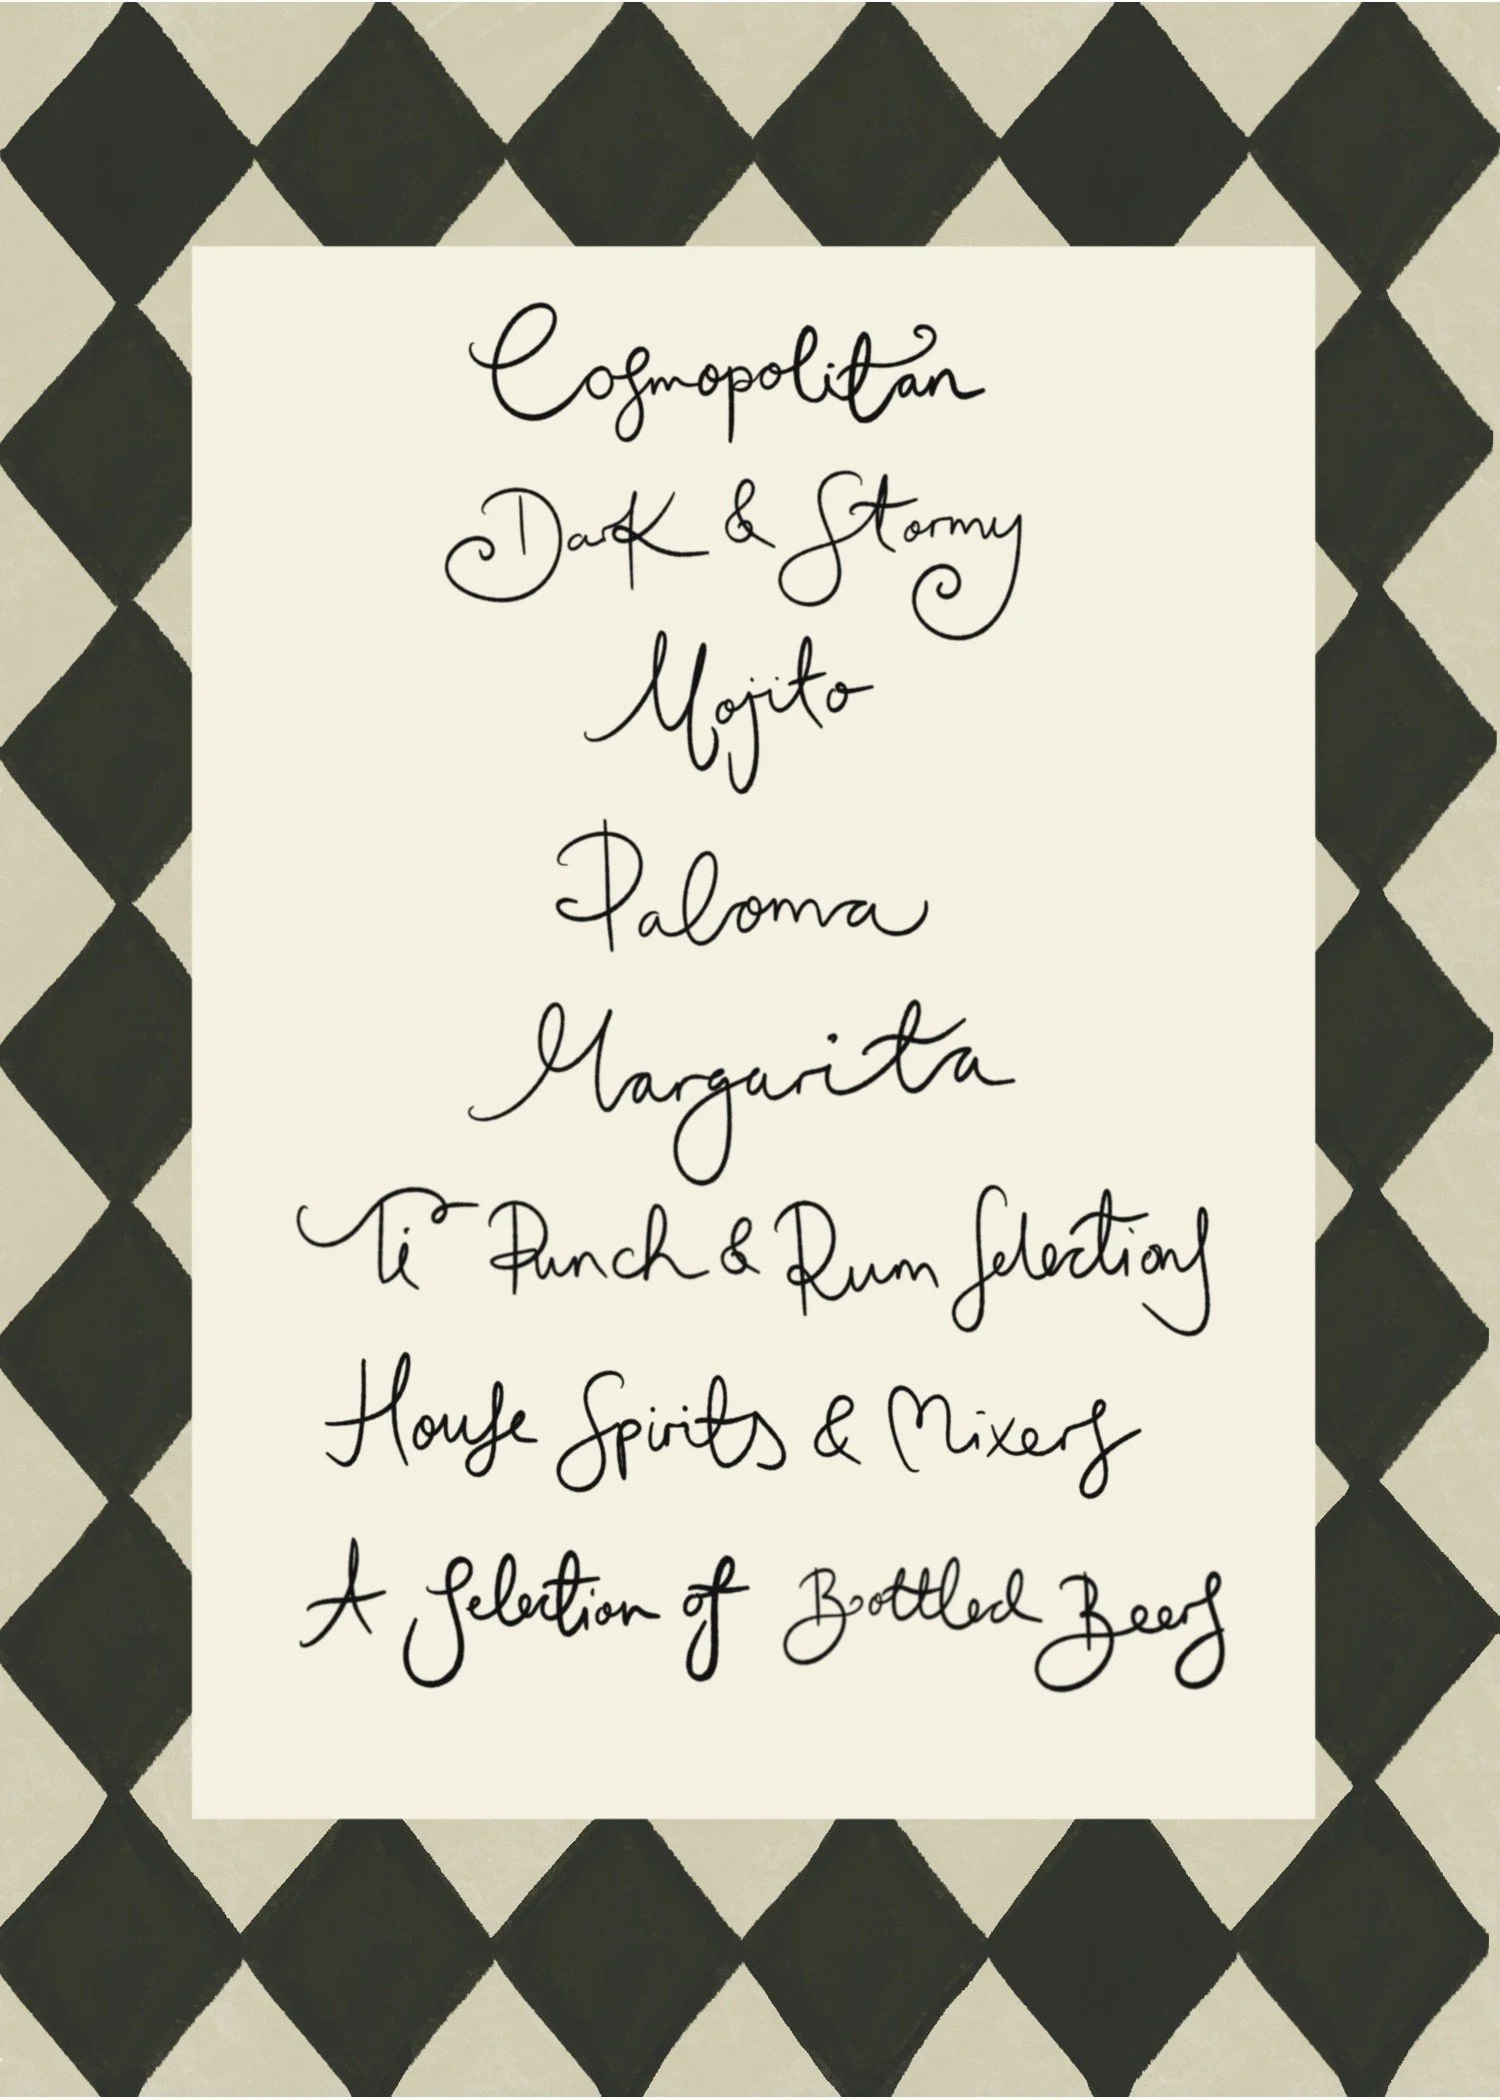 Cosmopolitan
Dark & Stormy
Mojito
Paloma
Margarita
Ti Punch & Rum Selections
House Spirits & Mixers
A Selection of Bottled Beers